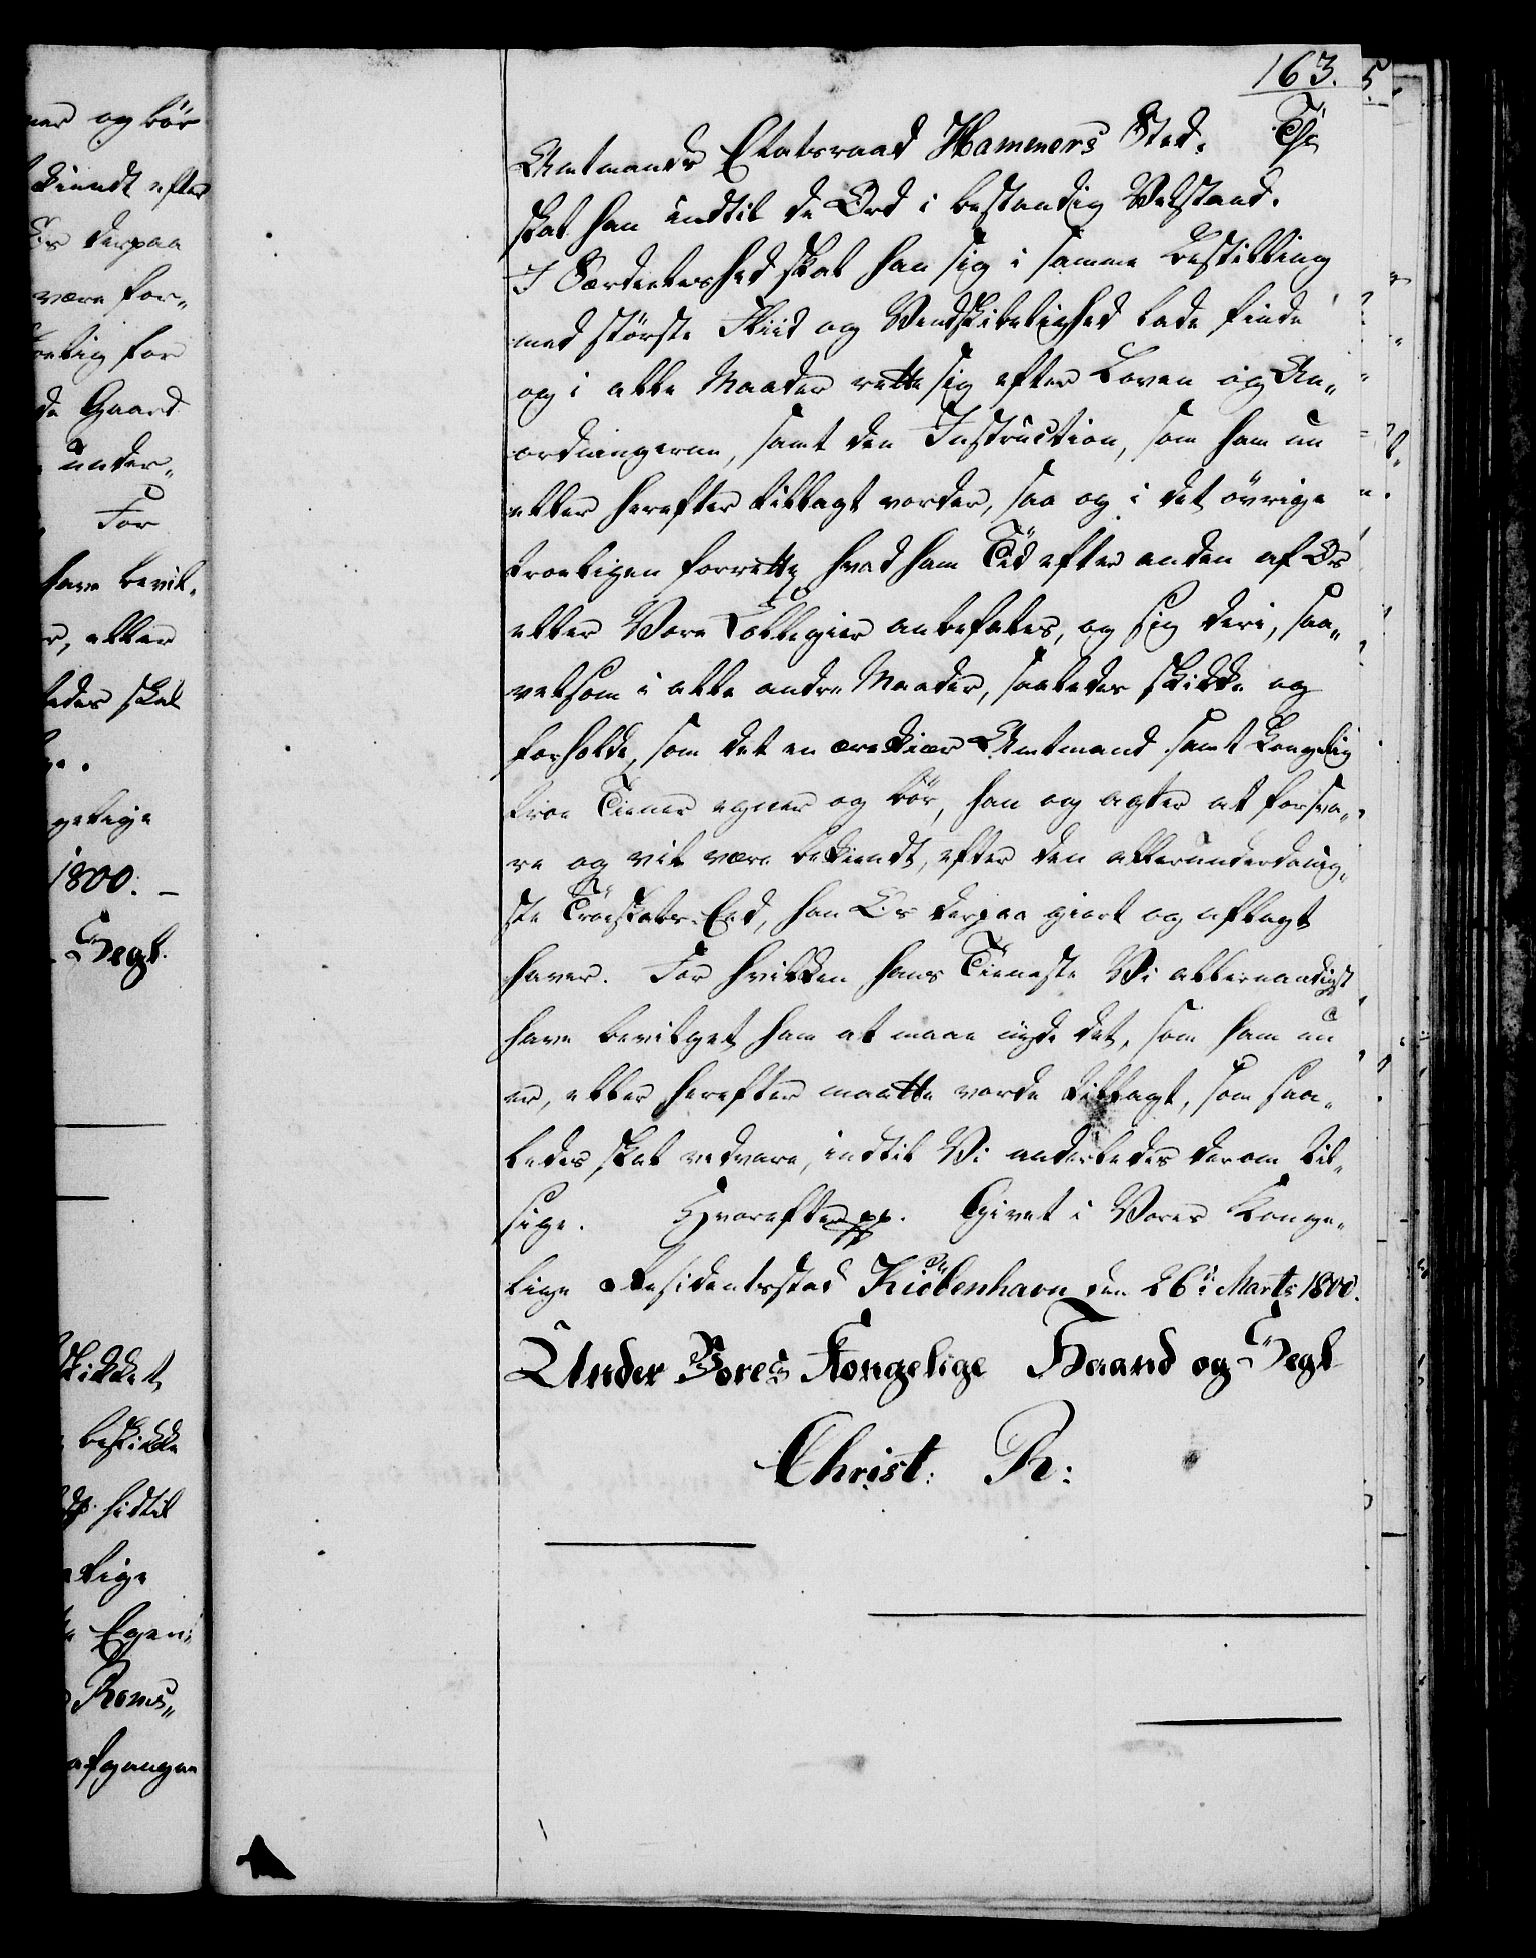 163.
Amtmands Etatsraad Hammers Sted. Thi
skal han indtil de Ord i bestandig Velstand.
I Særdeleshed skal han sig i samme Bestilling
med störste Fliid og Vindskibelighed lade finde
og i alle Maader rette sig efter Loven og An„
ordningerne, samt den Instruction, som ham nu
eller herefter tillagt vorder, saa og i det övrige
troeligen forrette hvad ham Tid efter anden af Os
eller Vore Collegier anbefales, og sig deri, saa„
velsom i alle andre Maader, saaledes skikke og
forholde, som det en ærekiær Amtmand samt Kongelig
troe Tiener egner og bör, han og agter at forsva„
re og vil være bekiendt, efter den allerunderdanig„
ste Troeskabs-Eed, han Os derpaa giort og aflagt
haver. For hvilken hans Tieneste Vi allernaadigst
have bevilget ham at maae nyde det, som ham nu
er, eller herefter maatte vorde tillagt, som saa„
ledes skal vedvare, indtil Vi anderledes derom til„
sige. Hvorefter pp. Givet i Vores Konge„
lige Residentsstad Kiöbenhavn den 26: Marts 1800.
Under Vores Kongelige Haand og Segl
Christ: R:
og bör
efter
derpaa
være for„
for
Gaard
under„
For
have bevil„
eller
skal
1800. –
Segl.
beskikke
hidtil
Roms„
afgangen